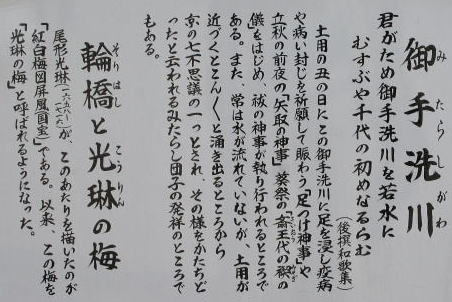 御手洗川
みたらしがわ
君がため御手洗川を若水に
むすぶや千代の初めなるらむ
（後撰和歌集）
土用の丑の日にこの御手洗川に足を浸し疫病
や病い封じを祈願して賑わう「足つけ神事」や
立秋の前夜の「矢取の神事」葵祭の「斎王代の禊の
儀」をはじめ、祓の神事が執り行われるところで
ある。また、常は水が流れていないが、土用が
近づくとこんこんと涌き出るところから
京の七不思議の一つとされ、その様をかたちど
ったと云われるみたらし団子の発祥のところで
もある。
輪橋と光琳の梅
そりはし
こうりん
尾形光琳が、このあたりを描いたのが
「紅白梅図屏風」（国宝）である。以来、この梅を
「光琳の梅」と呼ばれるようになった。